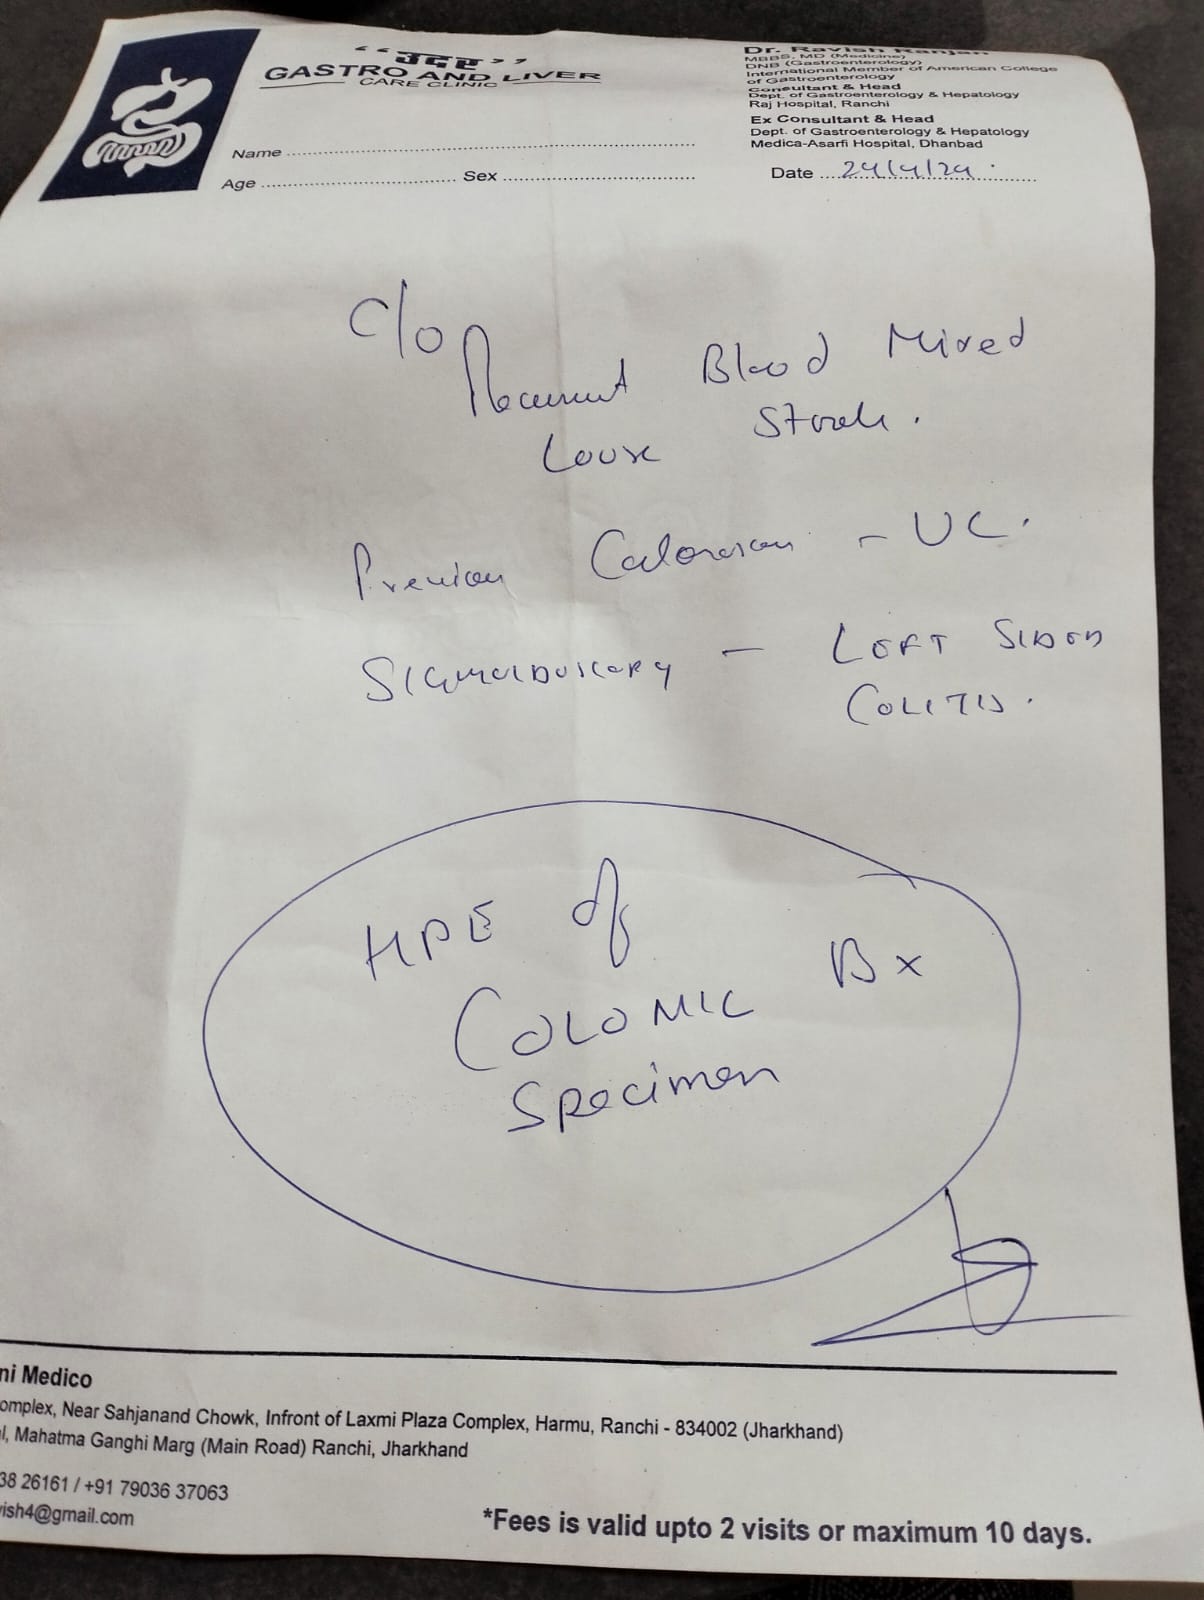 “उदर”
GASTRO AND LIVER
CARE CLINIC
Dr. Ravish Ranjan
MBBS, MD (Medicine)
DNB (Gastroenterology)
International Member of American College
of Gastroenterology
Consultant & Head
Dept. of Gastroenterology & Hepatology
Raj Hospital, Ranchi
Ex Consultant & Head
Dept. of Gastroenterology & Hepatology
Medica-Asarfi Hospital, Dhanbad
Name
Age Sex
Date 24/4/24
C/O
Recurrent Blood Mixed
Loose Stools.
Previous - UC.
SIGMOIDOSCOPY - LEFT SIDED
COLITIS.
HPE of
COLONIC Bx
Specimen
ni Medico
omplex, Near Sahjanand Chowk, Infront of Laxmi Plaza Complex, Harmu, Ranchi - 834002 (Jharkhand)
l, Mahatma Ganghi Marg (Main Road) Ranchi, Jharkhand
38 26161 / +91 79036 37063
ish4@gmail.com
*Fees is valid upto 2 visits or maximum 10 days.